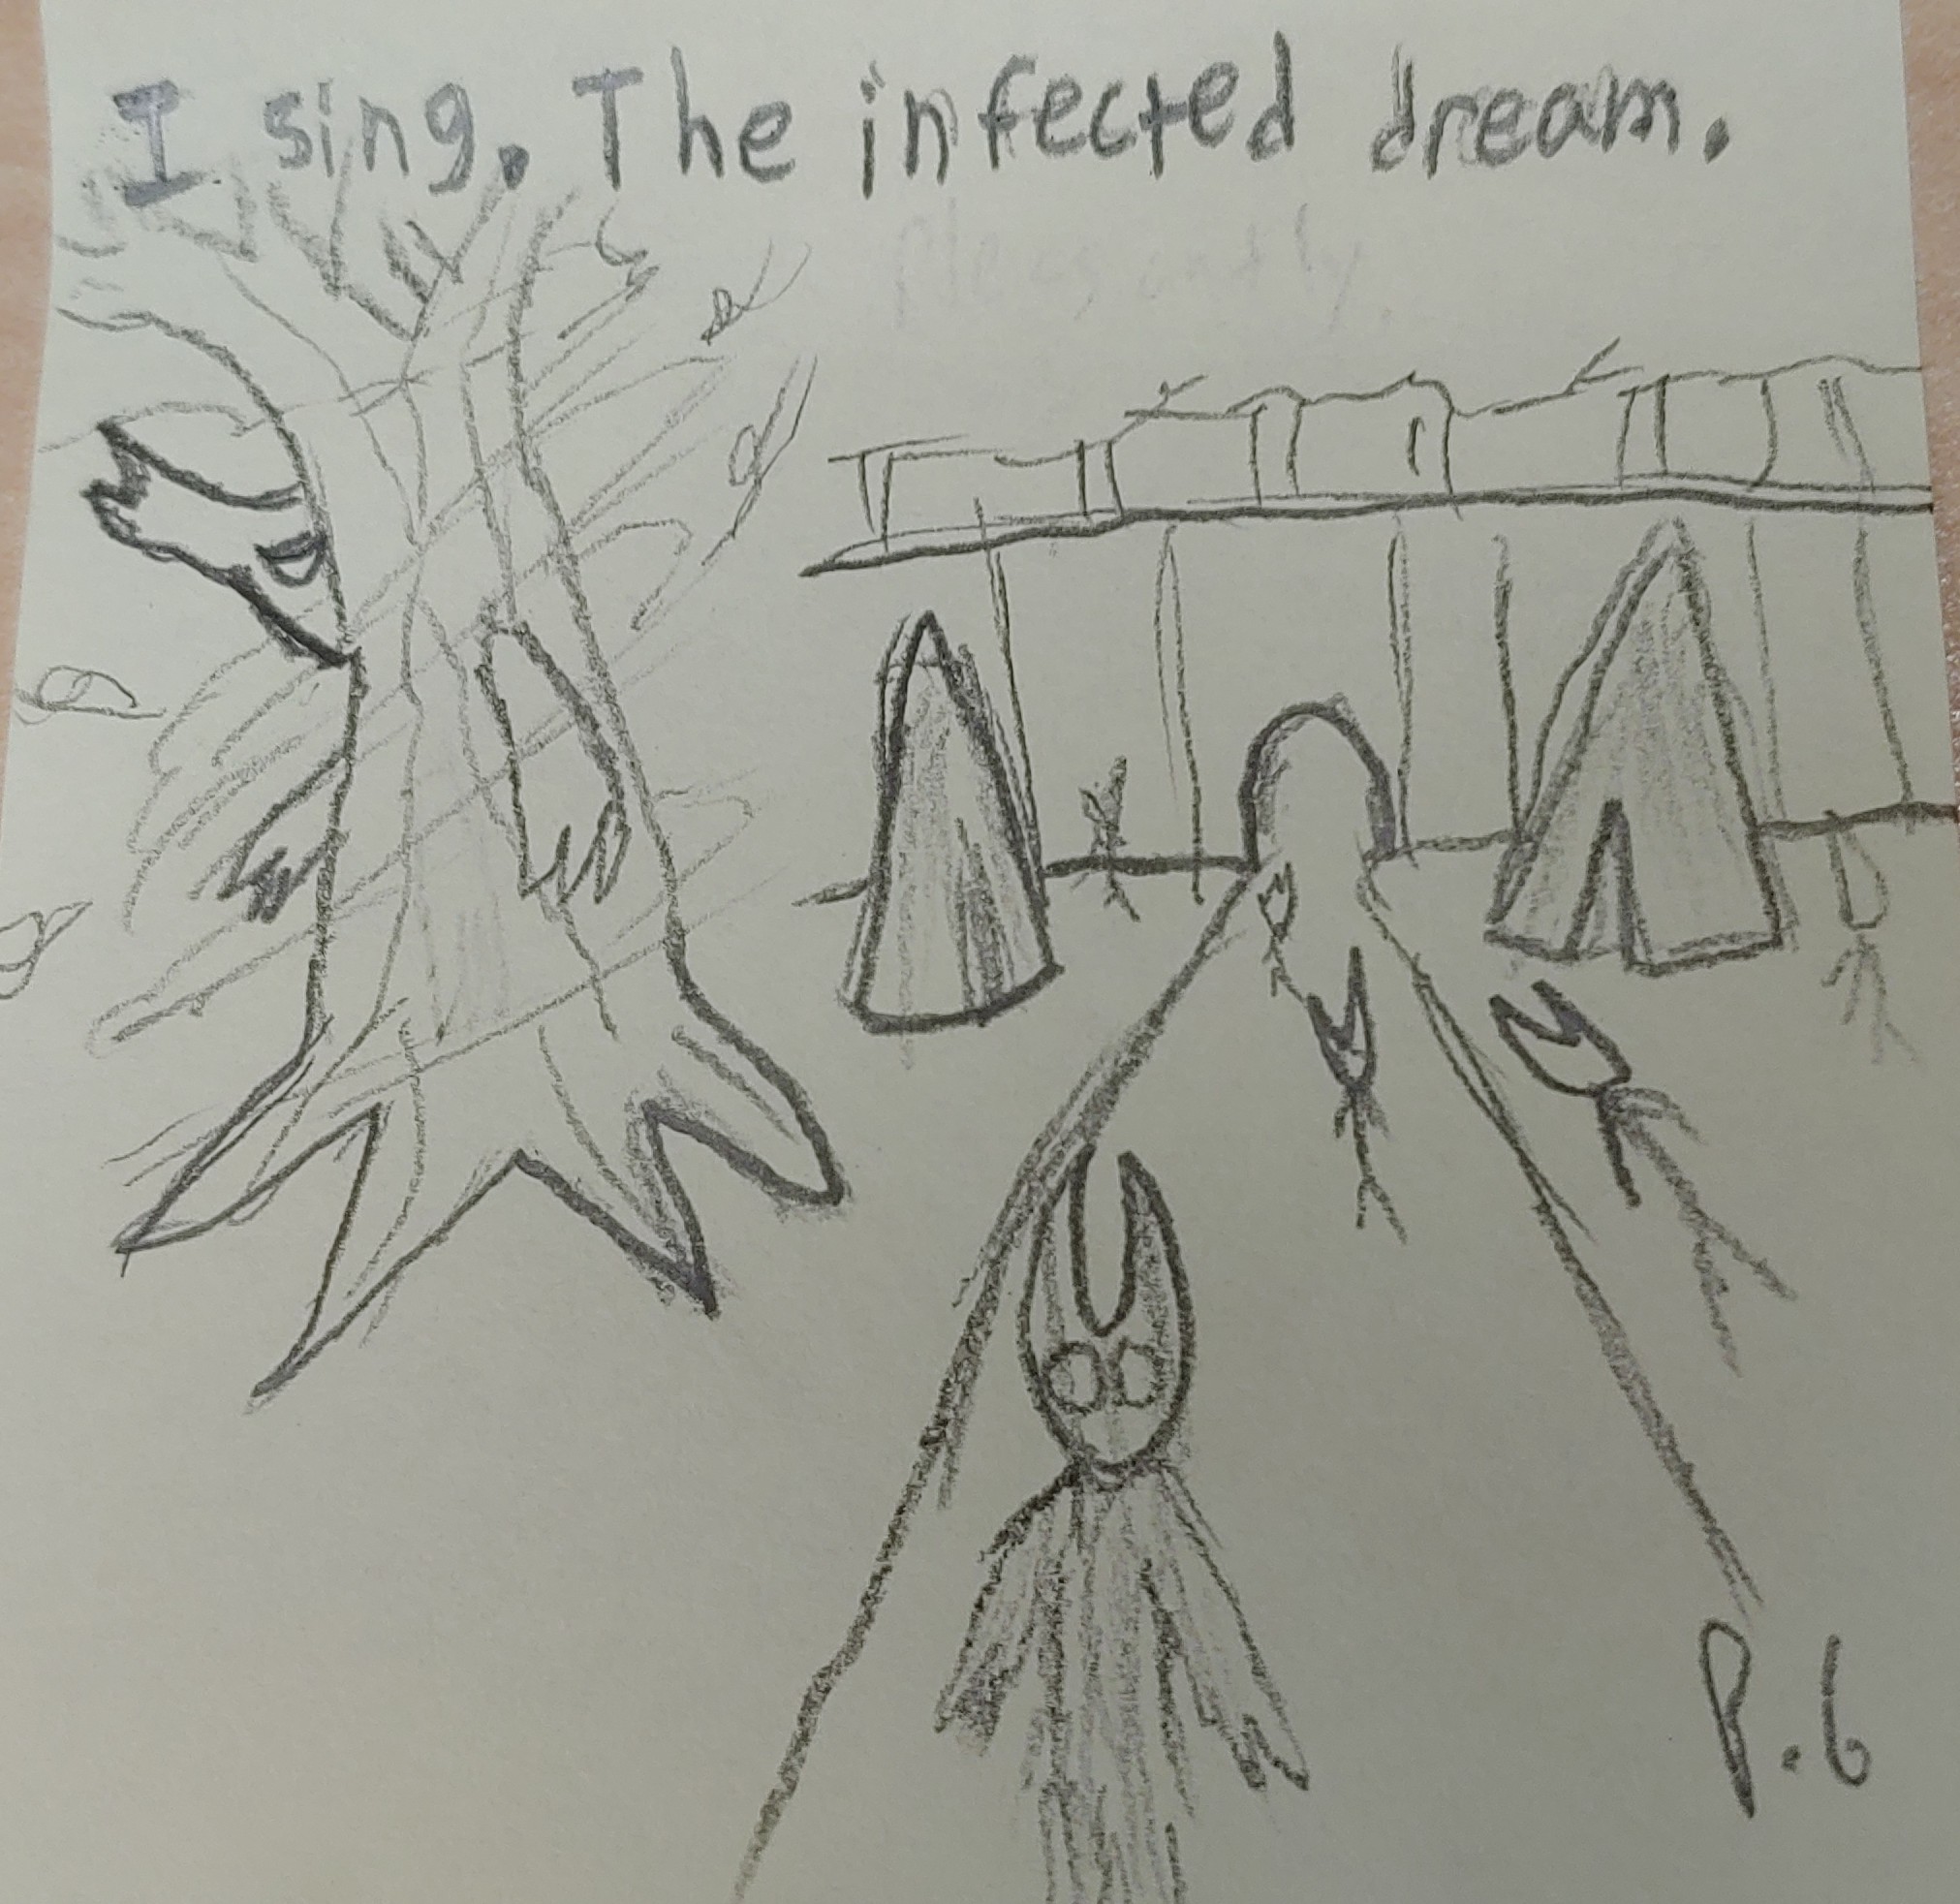 I sing. The infected dream.
Pleasantly.
P.6